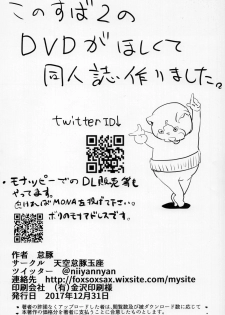 このすば2の
DVDがほしくて
同人誌作りました。
twitter ID↓
・モナッピーでのDL販売等も
やってます。
よければMONAを投げて下さい。
ボクのモナアドレスです。
作者 怠豚
サークル 天空怠豚玉座
ツイッター @niiyannyan
連絡先 http://foxsoxsax.wixsite.com/mysite
印刷会社 (有)金沢印刷様
発行日 2017年12月31日